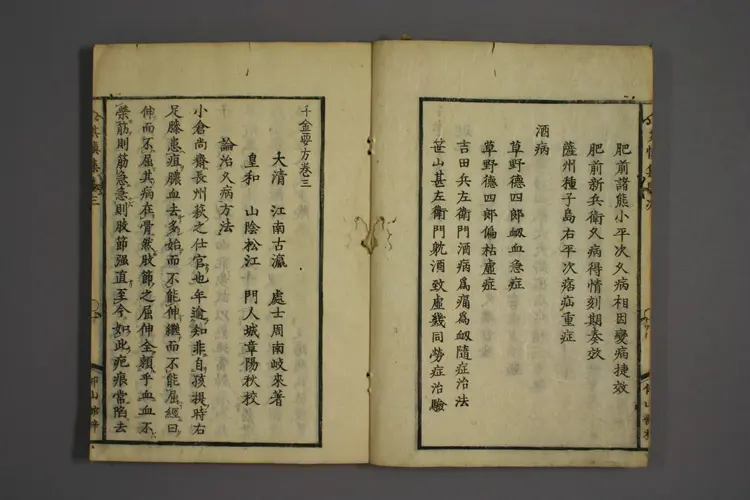 肥前諸熊小平次久病相因變病捷效
肥前新兵衛久病得情刻期奏效
薩州種子島右平次痞疝重症
酒病
草野德四郎衂血急症
草野德四郎偏枯虛症
吉田兵左衛門酒病爲痛爲衂隨症治法
笹山甚左衛門躭酒致虛幾同勞症治驗
千金要方卷三
大清 江南古瀛 處士周南岐來著
皇和 山陰松江 門人城章陽秋校
論治久病方法
小倉尚齋長州萩之仕官也年逾知非自孩提時右
足膝患疽膿血去多始而不能伸繼而不能屈經曰
伸而不屈其病在骨然肢節之屈伸全賴乎血血不
榮筋則筋急急則肢節强直至今如此疤痕常陷去